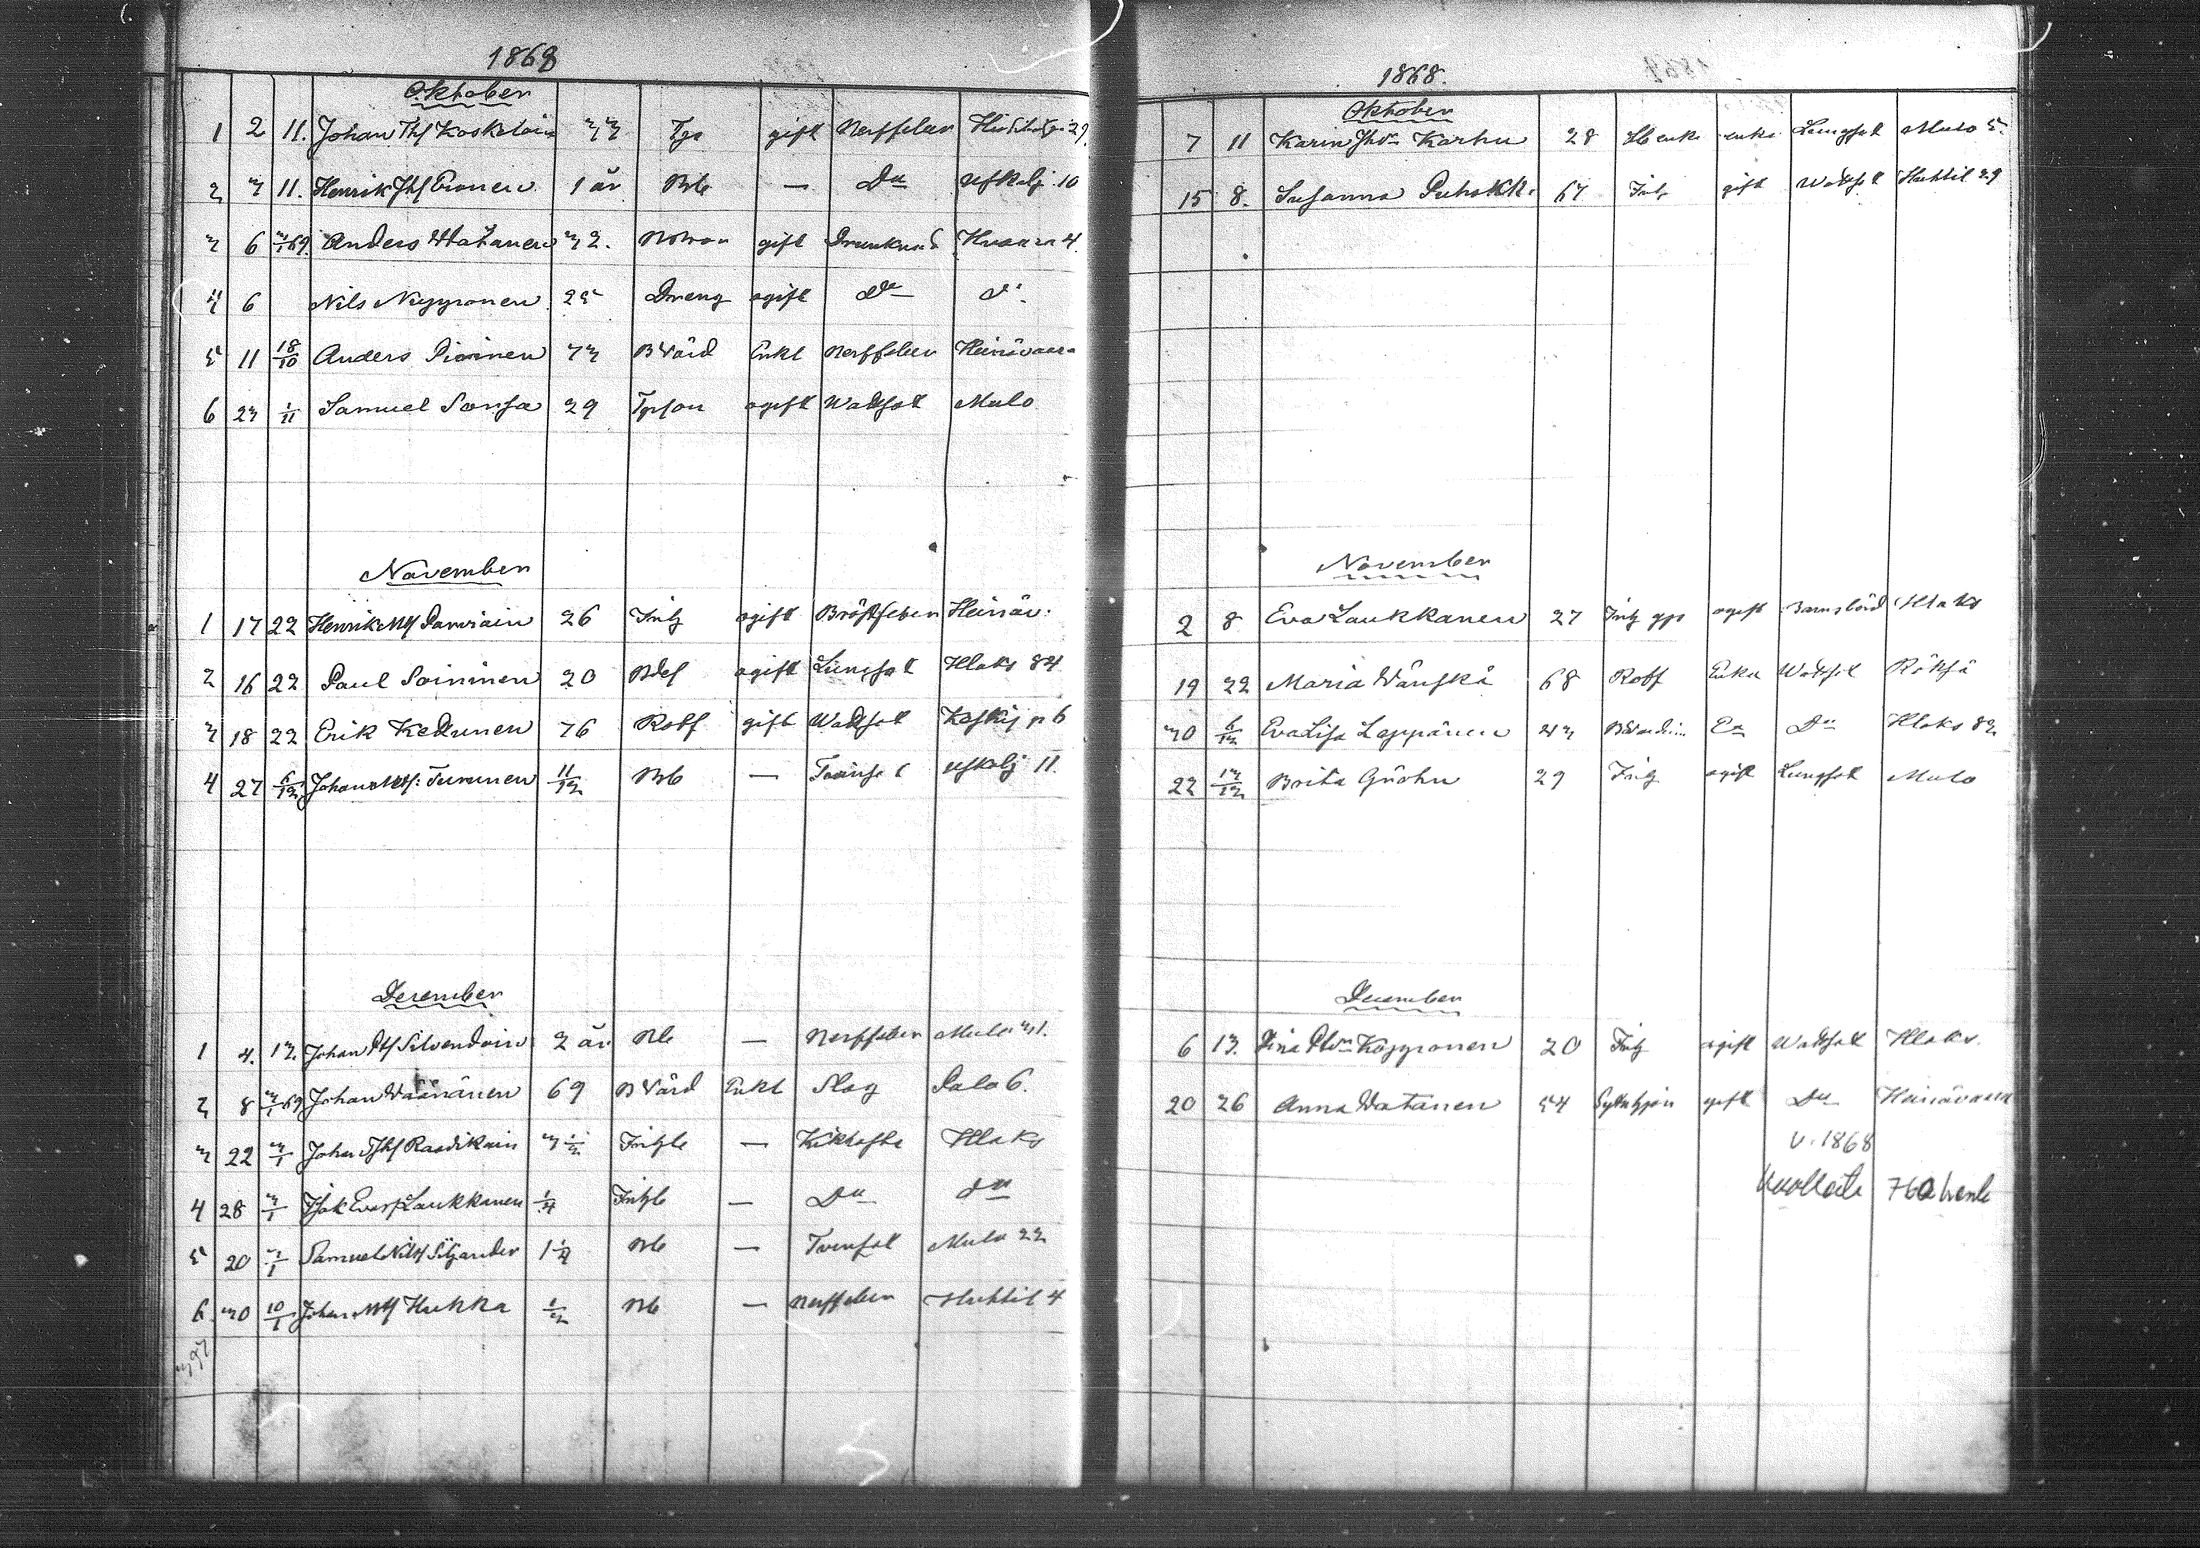 1868
Oktober
1 2 11. Johan Thf Koskeloin 33 Tgs gift Nerffeber 29.
2 3 11. Henrik Jhf Eronen 1 år Bb — Do Ufkalj 10
3 6 3/1 69. Anders Watanen 32. gift Drunknad Hvaara 4.
4 6 Nils Nyyronen 25 Dreng ogift Do do
5 11 18/10 Anders Piirinen 73 BVärd Enkl Nerffeber Heinävaara
6 23 1/11 Samuel Sorsa 29 Tgson ogift Wattsot Mulo
November
1 17 22 Henrik Mtf 26 Inh ogift Bröstfeber Heinäv.
2 16 22 Paul Soininen 20 ogift Lungsot Hlaks 84
3 18 22 Erik Kettunen 76 Rotf gift Wattsot 6
4 27 6/12 Johan Mtf: Turunen 11/12 Bb — Tvinsot Ufkalj 11.
December
1 4. 13. Johan Ptf Silvendoin 2 år Bb — Nerffeber Mulo 31.
2 8 3/1 69 Johan Wäänänen 69 BVärd Enkl Slag Palo 6.
3 22 3/1 Johan Jhf Raudikain 3 1/2 Inhb — Kikhosta Hlaks
4 28 3/1 Isak Evasf Laukkanen 1/4 Inhb — Do do
5 20 3/1 Samuel Nilsf Siljander 1 1/4 Bb — Tvinsot Mulo 22
6. 30 10/1 Johan Mtf Hukka 1/2 Bb — Nerffeber Huhtil 4
397
1868.
Oktober
7 11 Karin Jhdr Karhu 28 enka Lungsot Mulo 5.
15 8. Susanna Puhakka 67 Inh gift Wattsot Huhtil 29
November
2 8 Eva Laukkanen 27 Inh ogift Barnsbörd Hlaks
19 22 Maria Wänskä 68 Rotf Enka Wattsot Röksä
30 6/12 Eva Lisa Lappänen 43 Ea Do Hlaks 82
22 13/12 Brita Gröhn 29 Inh ogift Lungsot Mulo
December
6 13. Stina Ptdr Käyyronen 20 Inh ogift Wattsot Hlaks.
20 26 Anna Watanen 54 gift Do Heinävaara
v. 1868
kuolleita 760 henk